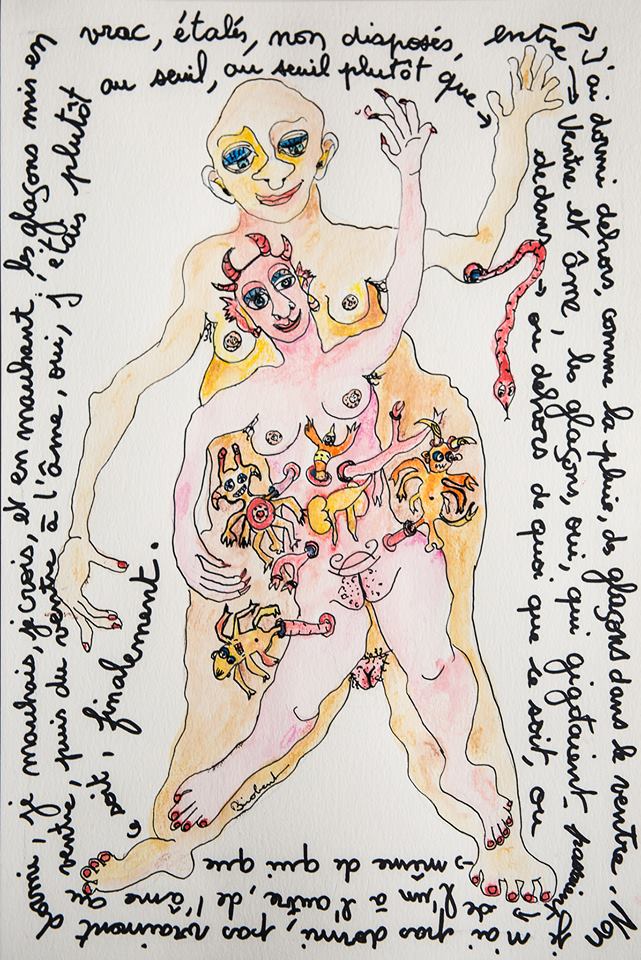 J'ai dormi dehors, comme la pluie, des glaçons dans le ventre. Non
je n'ai pas dormi, pas vraiment
dormi, je marchais, je crois, et en marchant, les glaçons mis en
vrac, étalés, non disposés, entre →
ventre et âme, les glaçons, oui, qui gigotaient, passaient
→ de l'un à l'autre, de l'âme au
ventre, puis du ventre à l'âme, oui, j'étais plutôt
au seuil, au seuil plutôt que →
dedans → ou dehors de quoi que ce soit, ou
→ même de qui que ce
soit, finalement.